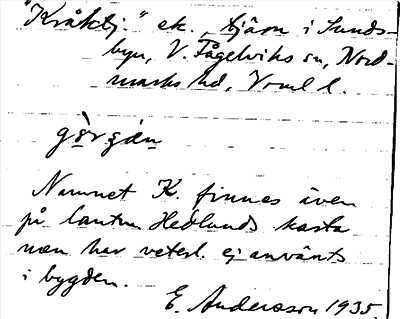 "Kråktj." ek. tjärn i Sunds-
byn, V. Fågelviks sn, Nord-
marks hd, Vrml l.
Namnet K. finnes även
på lantm Hedlunds karta
men har veterl. ej använts
i bygden.
E. Andersson 1935.